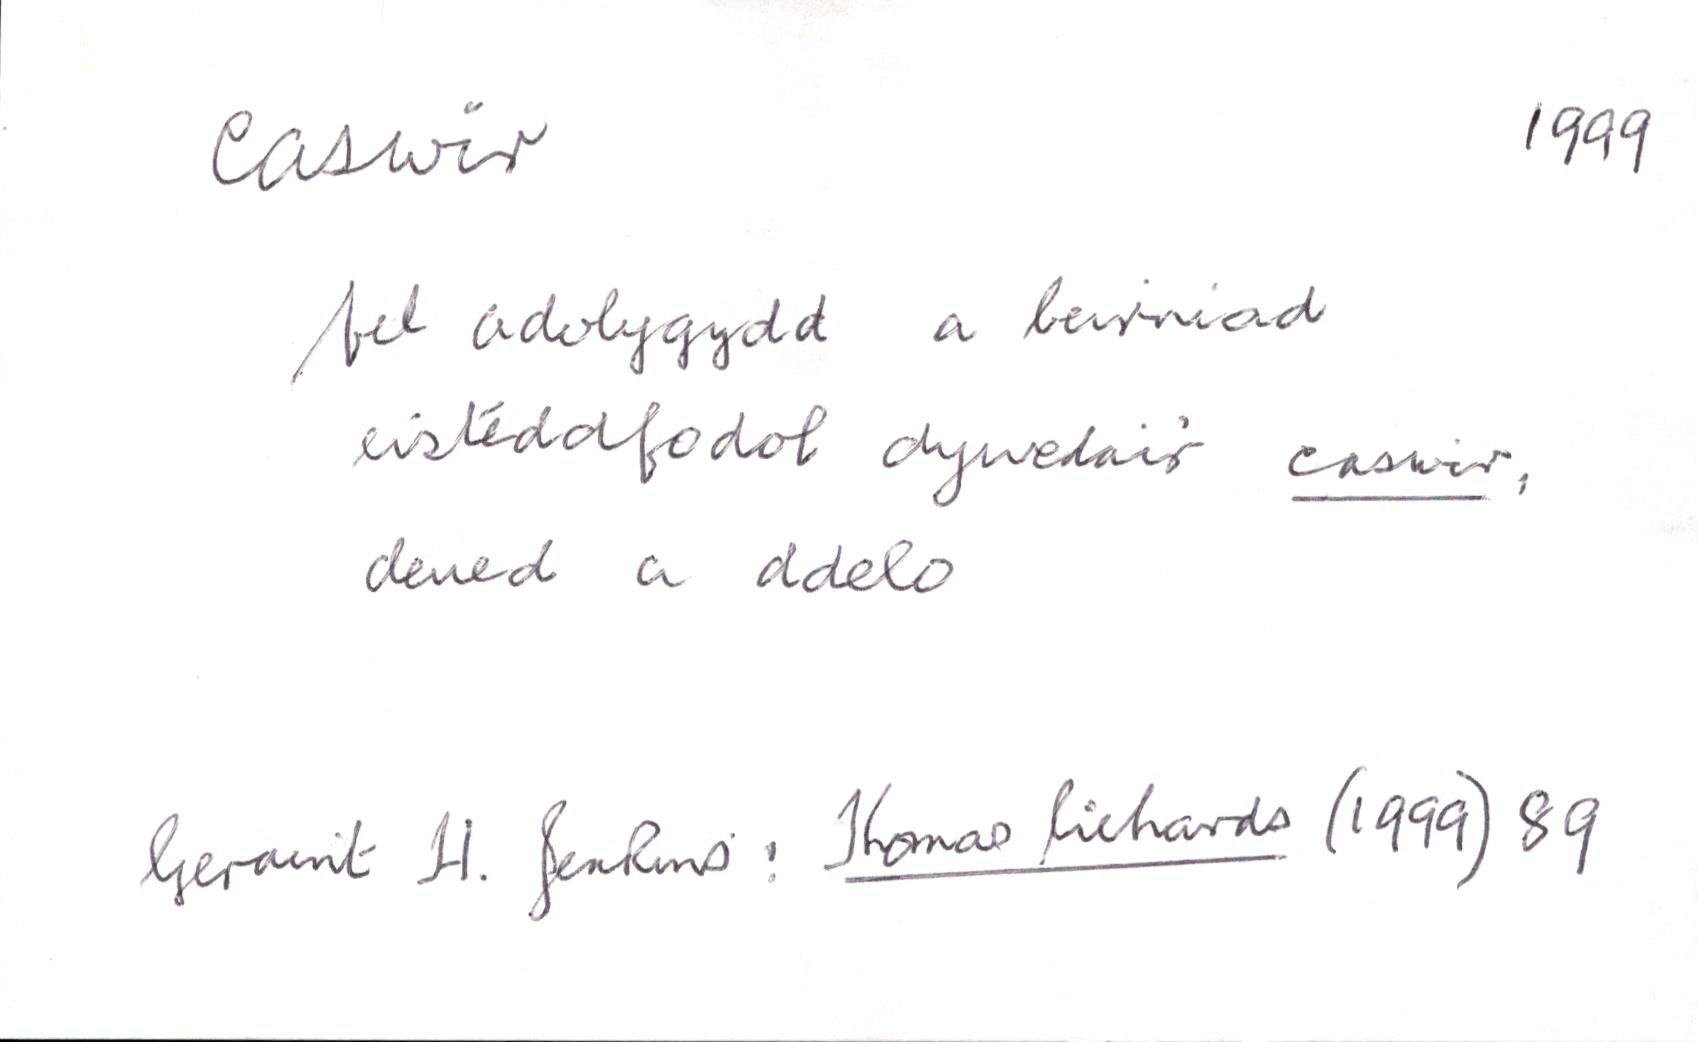 caswir 1999
fel adolygydd a beirniad
eisteddfodol dywedai'r caswir,
deued a ddelo
Geraint H. Jenkins: Thomas Richards (1999) 89